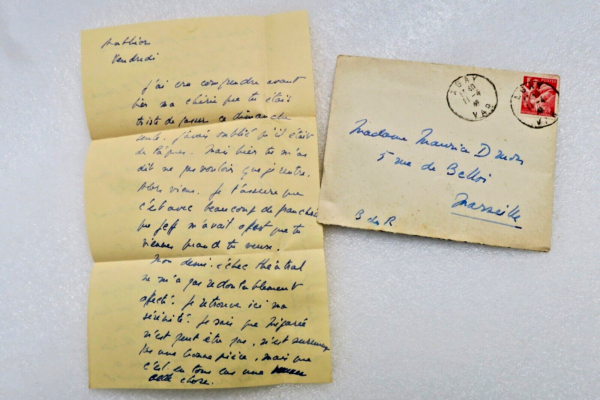 Vendredi
J'ai cru comprendre avant
hier ma chérie que tu étais
triste de passer ce dimanche
seule. J'avais oublié qu'il était
de Pâques. Mais hier tu m'as
dit ne pas vouloir que je rentre.
Alors viens. Je t'assure que
c'est avec beaucoup de
que Jef m'avait que tu
viennes quand tu veux.
Mon demi-échec théâtral
ne m'a pas redoutablement
affecté. Je retrouve ici ma
sérénité. Je sais que
n'est peut être pas, n'est
pas une bonne pièce, mais que
c'est en tous cas une
chose.
VAR
Madame Maurice
5 rue de Belloi
Marseille
B du R